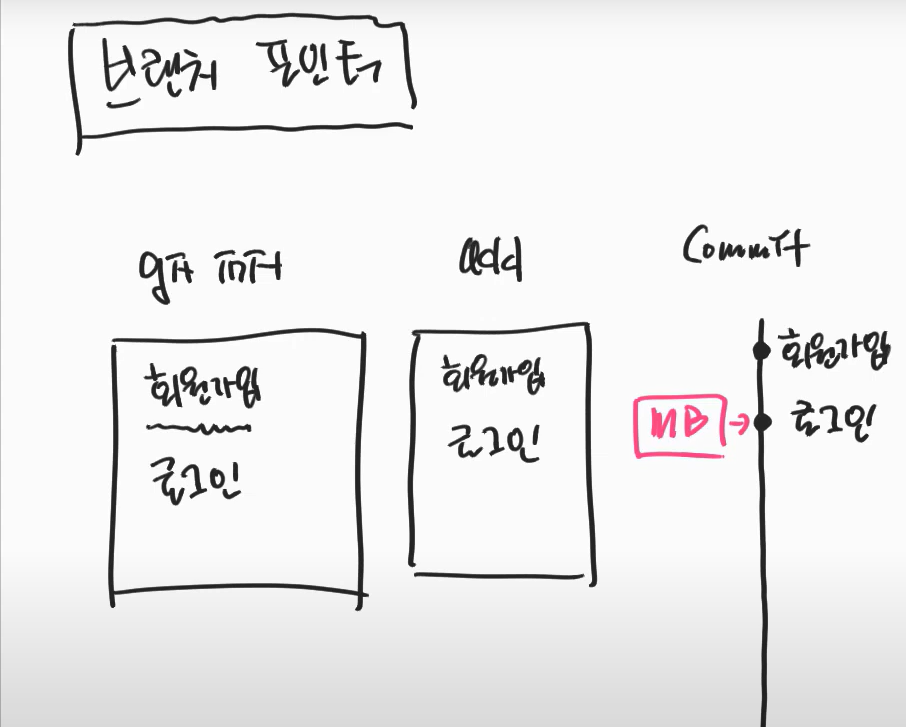 브랜치 포인터
git init
add
Commit
회원가입
로그인
회원가입
로그인
회원가입
MB
로그인